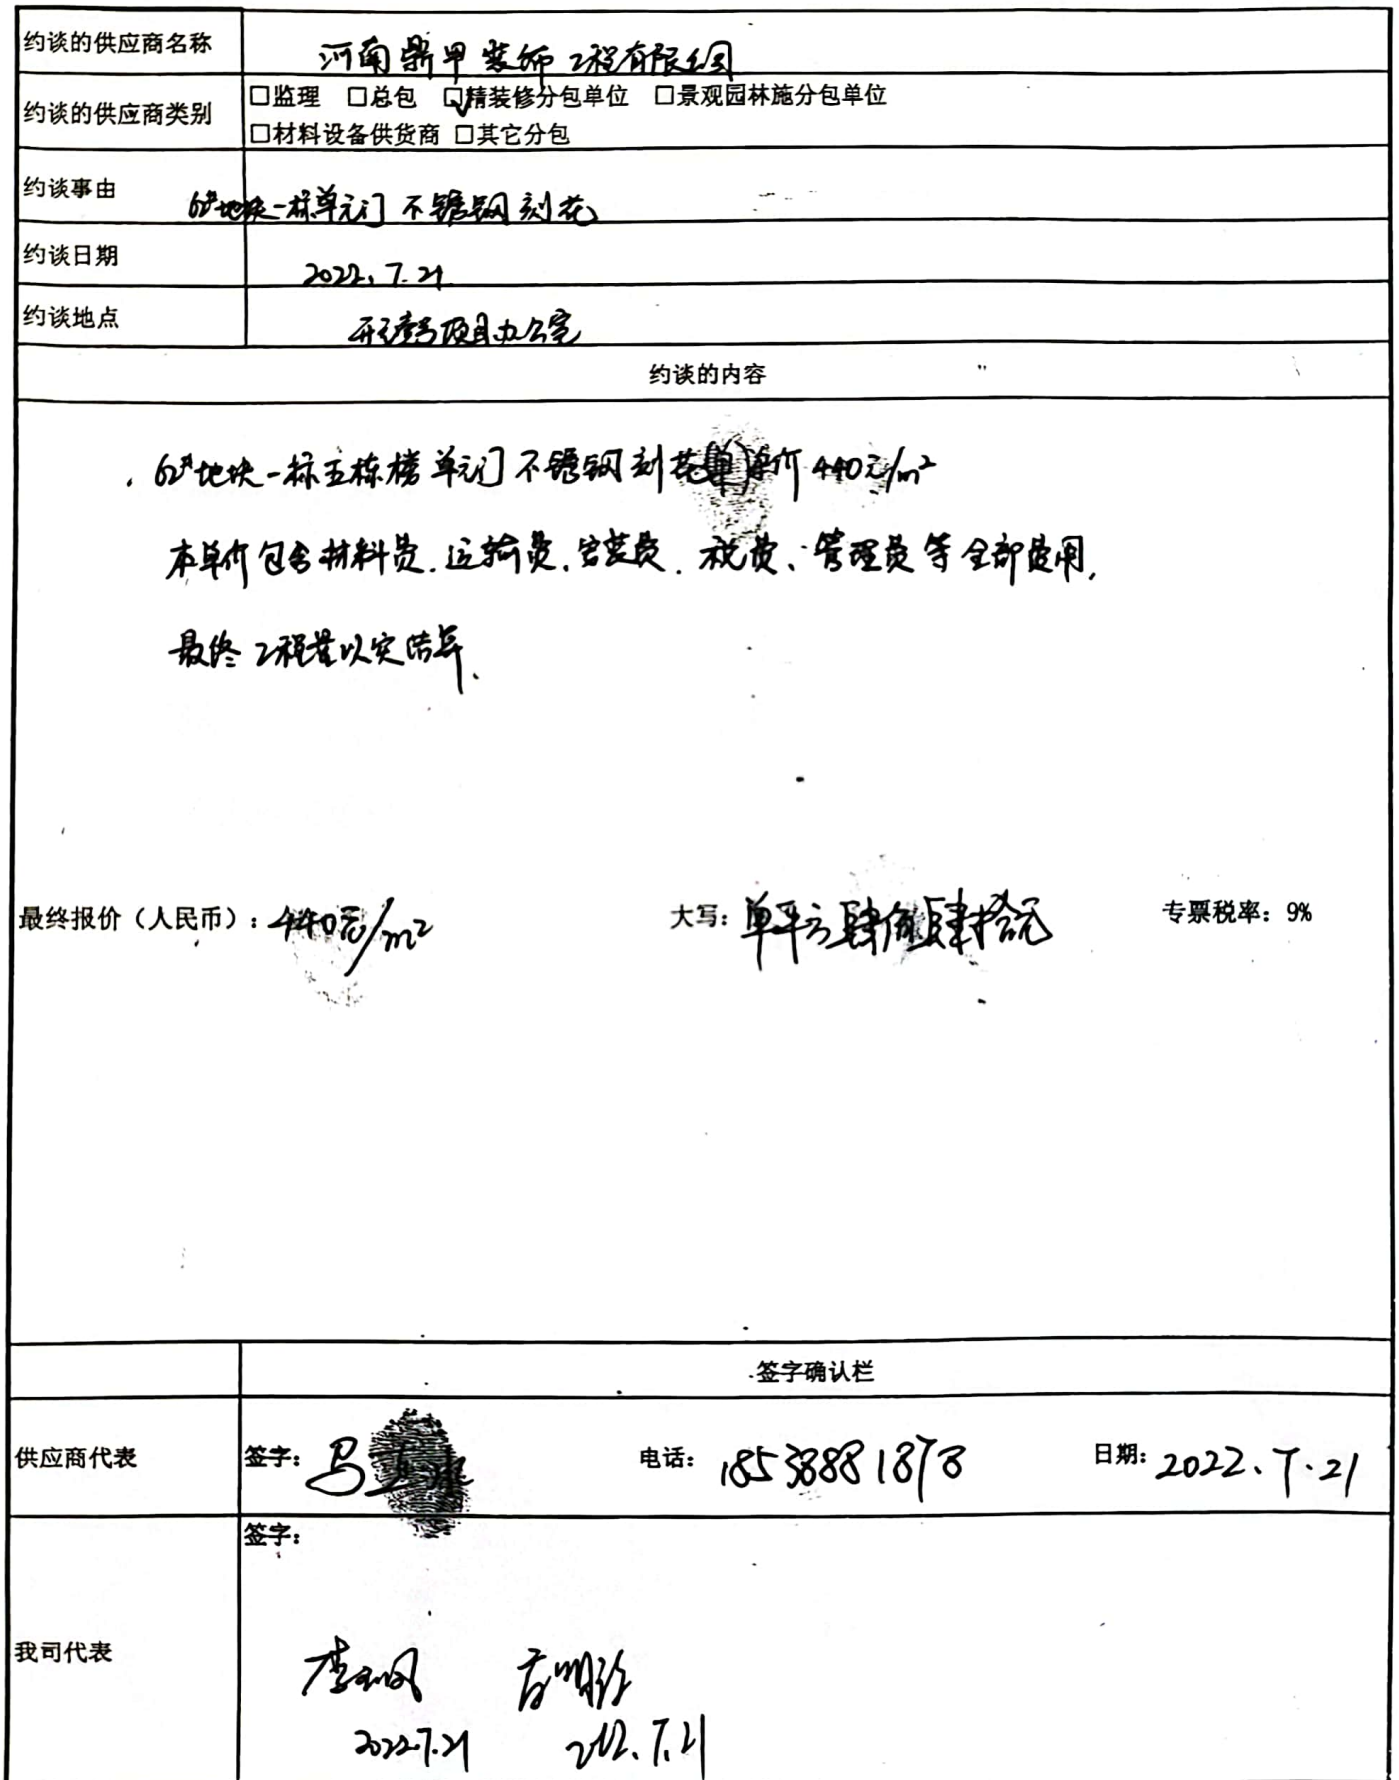 约谈的供应商名称 河南鼎甲装饰工程有限公司
约谈的供应商类别 □监理 □总包 ☑精装修分包单位 □景观园林施分包单位
□材料设备供货商 □其它分包
约谈事由 62#地块一标单元门不锈钢刻花
约谈日期 2022.7.21
约谈地点 项目办公室
约谈的内容
62#地块一标五栋楼单元门不锈钢刻花 单价440元/m²
本单价包含材料费、运输费、安装费、税费、管理费等全部费用,
最终工程量以实结算、
最终报价（人民币）: 440元/m² 大写: 单平方肆佰肆拾元 专票税率: 9%
签字确认栏
供应商代表 签字: 马 电话: 18538881873 日期: 2022.7.21
签字:
我司代表
2022.7.21 2022.7.21